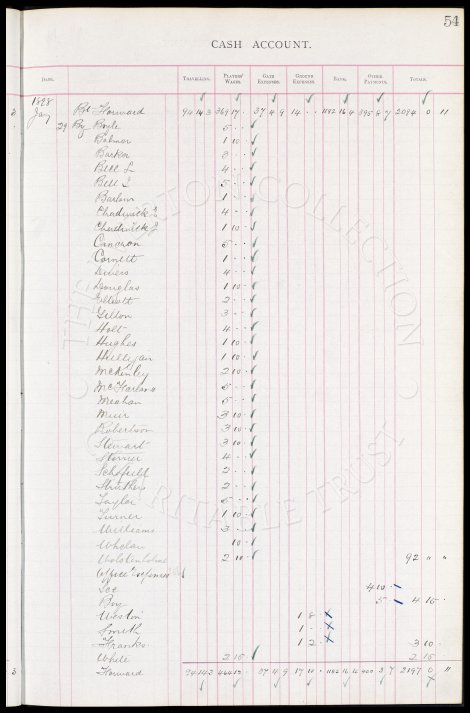 54
CASH ACCOUNT.
DATE. TRAVELLING. PLAYERS' WAGES. GATE EXPENSES. GROUND EXPENSES. BANK. OTHER PAYMENTS. TOTALS.
1898
Jany Bt Forward 94 14 3 369 17 · 37 4 9 14 · · 1182 16 4 395 8 7 2094 0 11
29 By Boyle 5 · ·
Balmer 1 10 ·
Barker 3 · ·
Bell L 4 · ·
Bell J 5 · ·
Barlow 1 · ·
Chadwick E 4 · ·
Chadwick J 1 10 ·
Cameron 5 · ·
Cornett 1 · ·
Divers 4 · ·
Douglas 1 10 ·
Elliott 2 · ·
Gillon 3 · ·
Holt 4 · ·
Hughes 1 10 ·
Hulligan 1 10 ·
McKinley 2 10 ·
McFarlane
Meehan 5 · ·
Muir 3 10 ·
Robertson 3 10 ·
Stewart 3 10 ·
Storrier 4 · ·
Schofield 2 · ·
Struthers 2 · ·
Taylor 5 · ·
Turner 1 10 ·
Williams 3 · ·
Whelan 10 ·
Wolstenholme 2 10 · 92 " "
Office Expenses
4 10 -
Boy 5 - 4 15 ·
Weston 1 8 ·
Smith 1 · ·
Franks 1 2 · 3 10 ·
White 2 15 · 2 15
Forward 94 14 3 464 12 · 37 4 9 17 10 · 1182 16 4 400 3 7 2197 0 "
THE EVERTON COLLECTION CHARITABLE TRUST